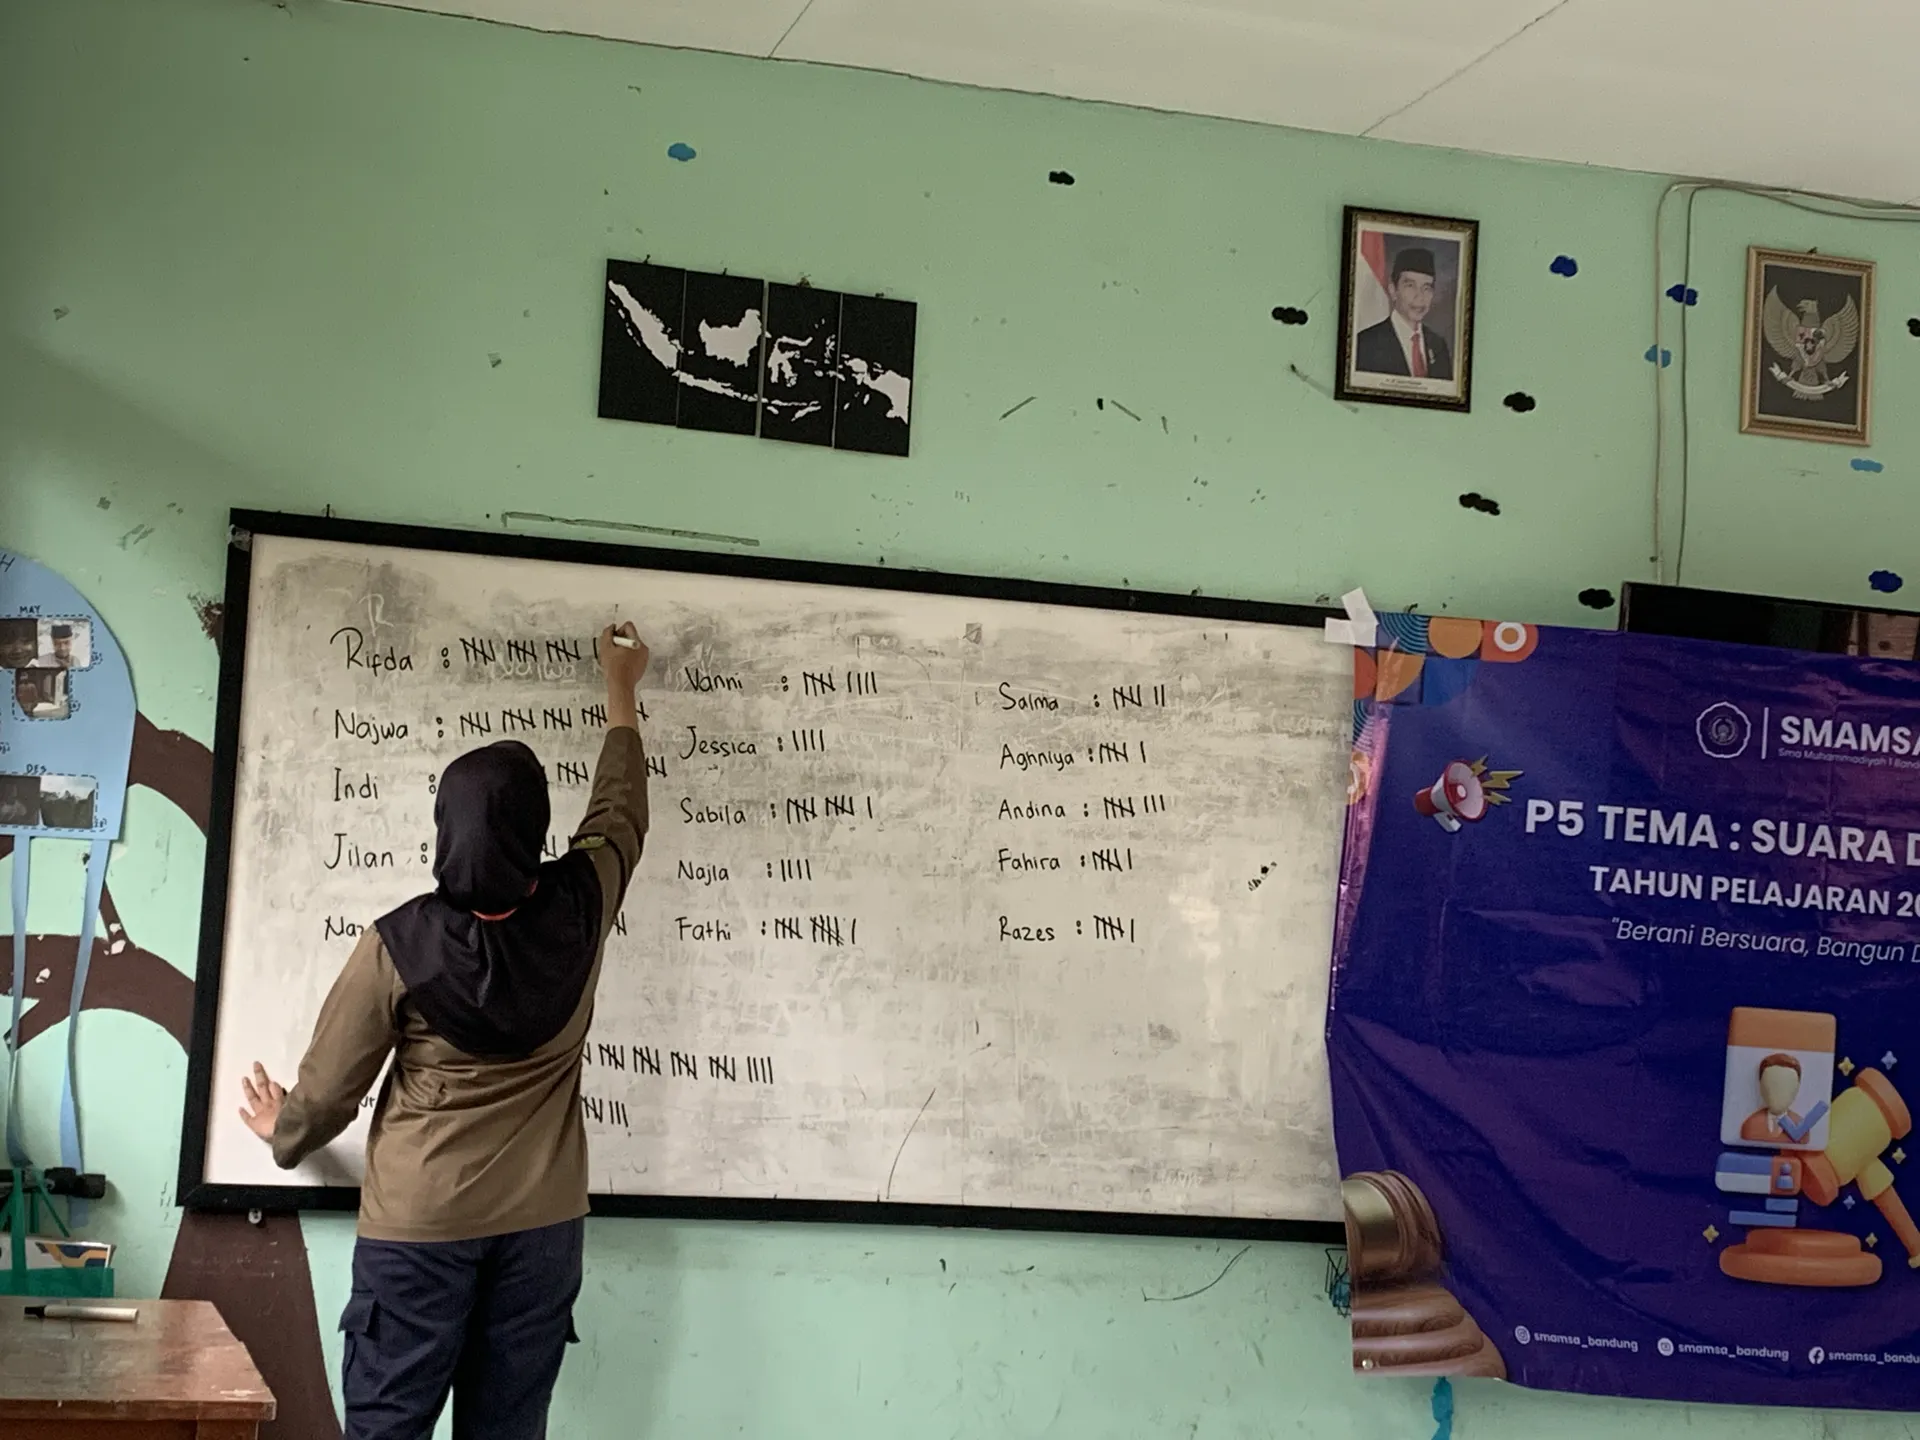 MAY
DES
R
Rifda : 卌 卌 卌 |
Najwa : 卌 卌 卌 卌
Indi :
Jilan :
Vanni : 卌 ||||
Jessica : ||||
Sabila : 卌 卌 |
Najla : ||||
Fathi : 卌 卌 |
Salma : 卌 ||
Aghniya : 卌 |
Andina : 卌 |||
Fahira : 卌 |
Razes : 卌 |
卌 卌 卌 卌 ||||
卌 |||
SMAMSA
Sma Muhammadiyah 1 Band
P5 TEMA : SUARA D
TAHUN PELAJARAN 20
"Berani Bersuara, Bangun D
smamsa_bandung
smamsa_bandung
smamsa_bandu